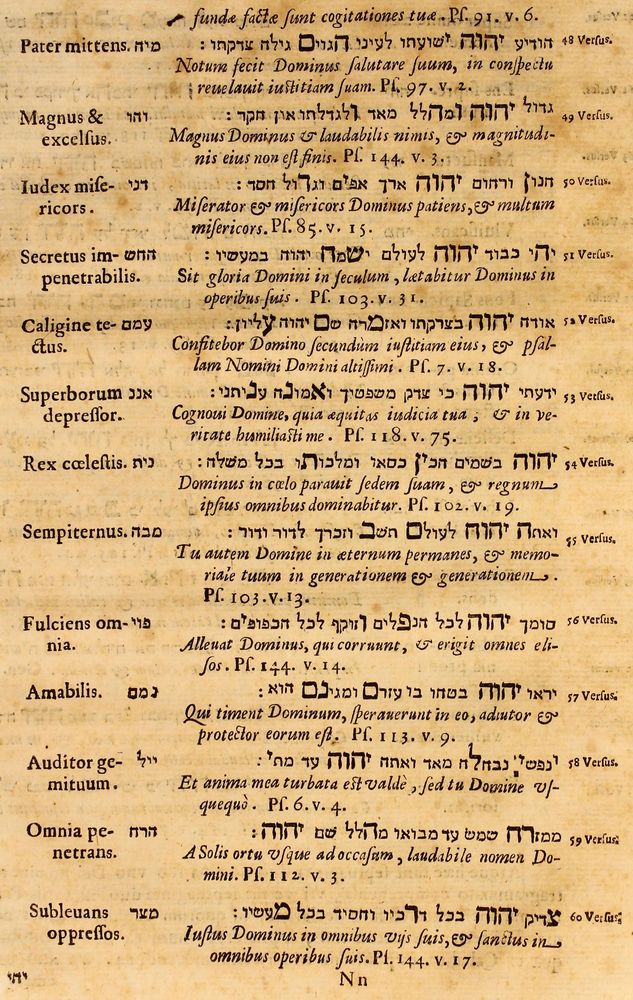 fundæ factæ sunt cogitationes tuæ. Ps. 91. v. 6.
Pater mittens. מיה הודיע יהוה ישועתו לעיני הגוים גילה צדקתו : 48 Versus.
Notum fecit Dominus salutare suum, in conspectu
reuelauit iustitiam suam. Ps. 97. v. 2.
Magnus & והו גדול יהוה ומהלל מאד ולגדלתו אין חקר : 49 Versus.
excelsus. Magnus Dominus & laudabilis nimis, & magnitudi-
nis eius non est finis. Ps. 144. v. 3.
Iudex mise- דני חנון ורחום יהוה ארך אפים וגדול חסד : 50 Versus.
ricors. Miserator & misericors Dominus patiens, & multum
misericors. Ps. 85. v. 15.
Secretus im- החש יהי כבוד יהוה לעולם ישמח יהוה במעשיו : 51 Versus.
penetrabilis. Sit gloria Domini in seculum, lætabitur Dominus in
operibus suis. Ps. 103. v. 31.
Caligine te- עמם אודה יהוה בצדקתו ואזמרה שם יהוה עליון : 52 Versus.
ctus. Confitebor Domino secundùm iustitiam eius, & psal-
lam Nomini Domini altissimi. Ps. 7. v. 18.
Superborum אננ ידעתי יהוה כי צדק משפטיך ואמונה עניתני : 53 Versus.
depressor. Cognoui Domine, quia æquitas iudicia tua; & in ve-
ritate humiliasti me. Ps. 118. v. 75.
Rex cœlestis. נית יהוה בשמים הכין כסאו ומלכותו בכל משלה : 54 Versus.
Dominus in cœlo parauit sedem suam, & regnum
ipsius omnibus dominabitur. Ps. 102. v. 19.
Sempiternus. מבה ואתה יהוה לעולם תשב וזכרך לדור ודור : 55 Versus.
Tu autem Domine in æternum permanes, & memo-
riale tuum in generationem & generationem.
Ps. 103. v. 13.
Fulciens om- פוי סומך יהוה לכל הנפלים וזוקף לכל הכפופים : 56 Versus.
nia. Alleuat Dominus, qui corruunt, & erigit omnes eli-
sos. Ps. 144. v. 14.
Amabilis. נמם יראו יהוה בטחו בו עזרם ומגינם הוא : 57 Versus.
Qui timent Dominum, sperauerunt in eo, adiutor &
protector eorum est. Ps. 113. v. 9.
Auditor ge- ייל ונפשי נבהלה מאד ואתה יהוה עד מתי : 58 Versus.
mituum. Et anima mea turbata est valdè, sed tu Domine vs-
quequò. Ps. 6. v. 4.
Omnia pe- הרח ממזרח שמש עד מבואו מהלל שם יהוה : 59 Versus.
netrans. A Solis ortu vsque ad occasum, laudabile nomen Do-
mini. Ps. 112. v. 3.
Subleuans מצר צדיק יהוה בכל דרכיו וחסיד בכל מעשיו : 60 Versus.
oppressos. Iustus Dominus in omnibus vijs suis, & sanctus in
omnibus operibus suis. Ps. 144. v. 17.
יהי Nn